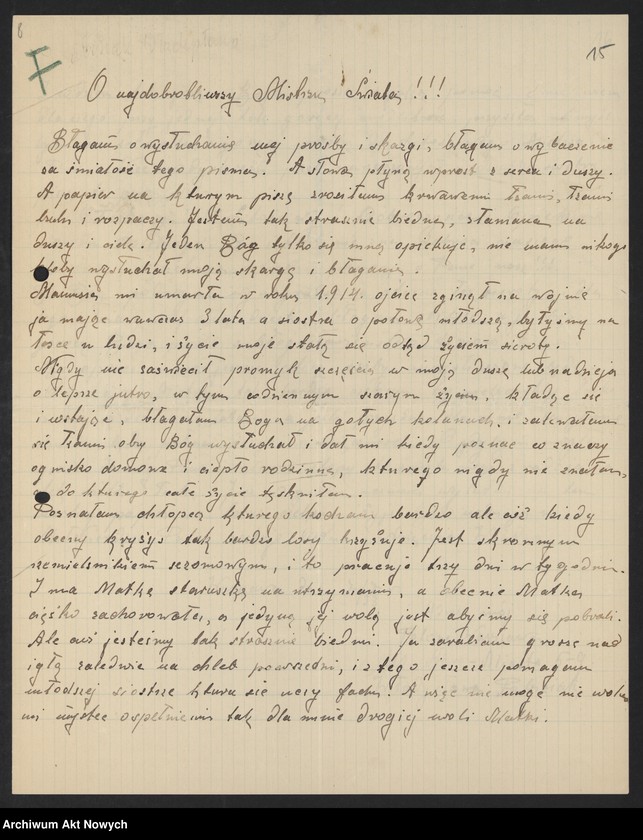 8
15
F
O najdobrotliwszy Mistrzu Świata!!!
Błagam o wysłuchanie mej prośby i skargi, błagam o wybaczenie
za śmiałość tego pisma. A słowa płyną wprost z serca i duszy.
A papier na kturym piszę zrosiłam krwawemi łzami, łzami
bulu i rozpaczy. Jestem tak strasznie biedna, złamana na
duszy i ciele. Jeden Bóg tylko się mną opiekuje, nie mam nikogo
ktoby wysłuchał moją skargę i błaganie.
Mamusia mi umarła w roku 1914. ojciec zginął na wojnie
ja mając wuwczas 3 lata a siostra o połowę młodsza, byłyśmy na
łasce u ludzi, i życie moje stało się odtąd życiem sieroty.
Nigdy nie zaświecił promyk szczęścia w moją duszę lub nadzieja
o lepsze jutro, w tym codziennym szarym życiu, kładąc się
i wstając, błagałam Boga na gołych kolanach, i zalewałam
się łzami oby Bóg wysłuchał i dał mi kiedy poznać co znaczy
ognisko domowe i ciepło rodzinne, kturego nigdy nie znałam,
a do kturego całe życie tęskniłam.
Poznałam chłopca kturego kocham bardzo ale cóż kiedy
obecny kryzys tak bardzo losy krzyżuje. Jest skromnym
rzemieślnikiem sezonowym, i to pracuje trzy dni w tygodniu.
I ma Matkę staruszkę na utrzymaniu, a obecnie Matka
ciężko zachorowała, a jedyną jej wolą jest abyśmy się pobrali.
Ale cuż jesteśmy tak strasznie biedni. Ja zarabiam grosze nad
igłą zaledwie na chleb powszedni, i z tego jeszcze pomagam
młodszej siostrze ktura się uczy fachu. A więc nie mogę nie wolno
mi myśleć o spełnieniu tak dla mnie drogiej woli Matki.
Archiwum Akt Nowych